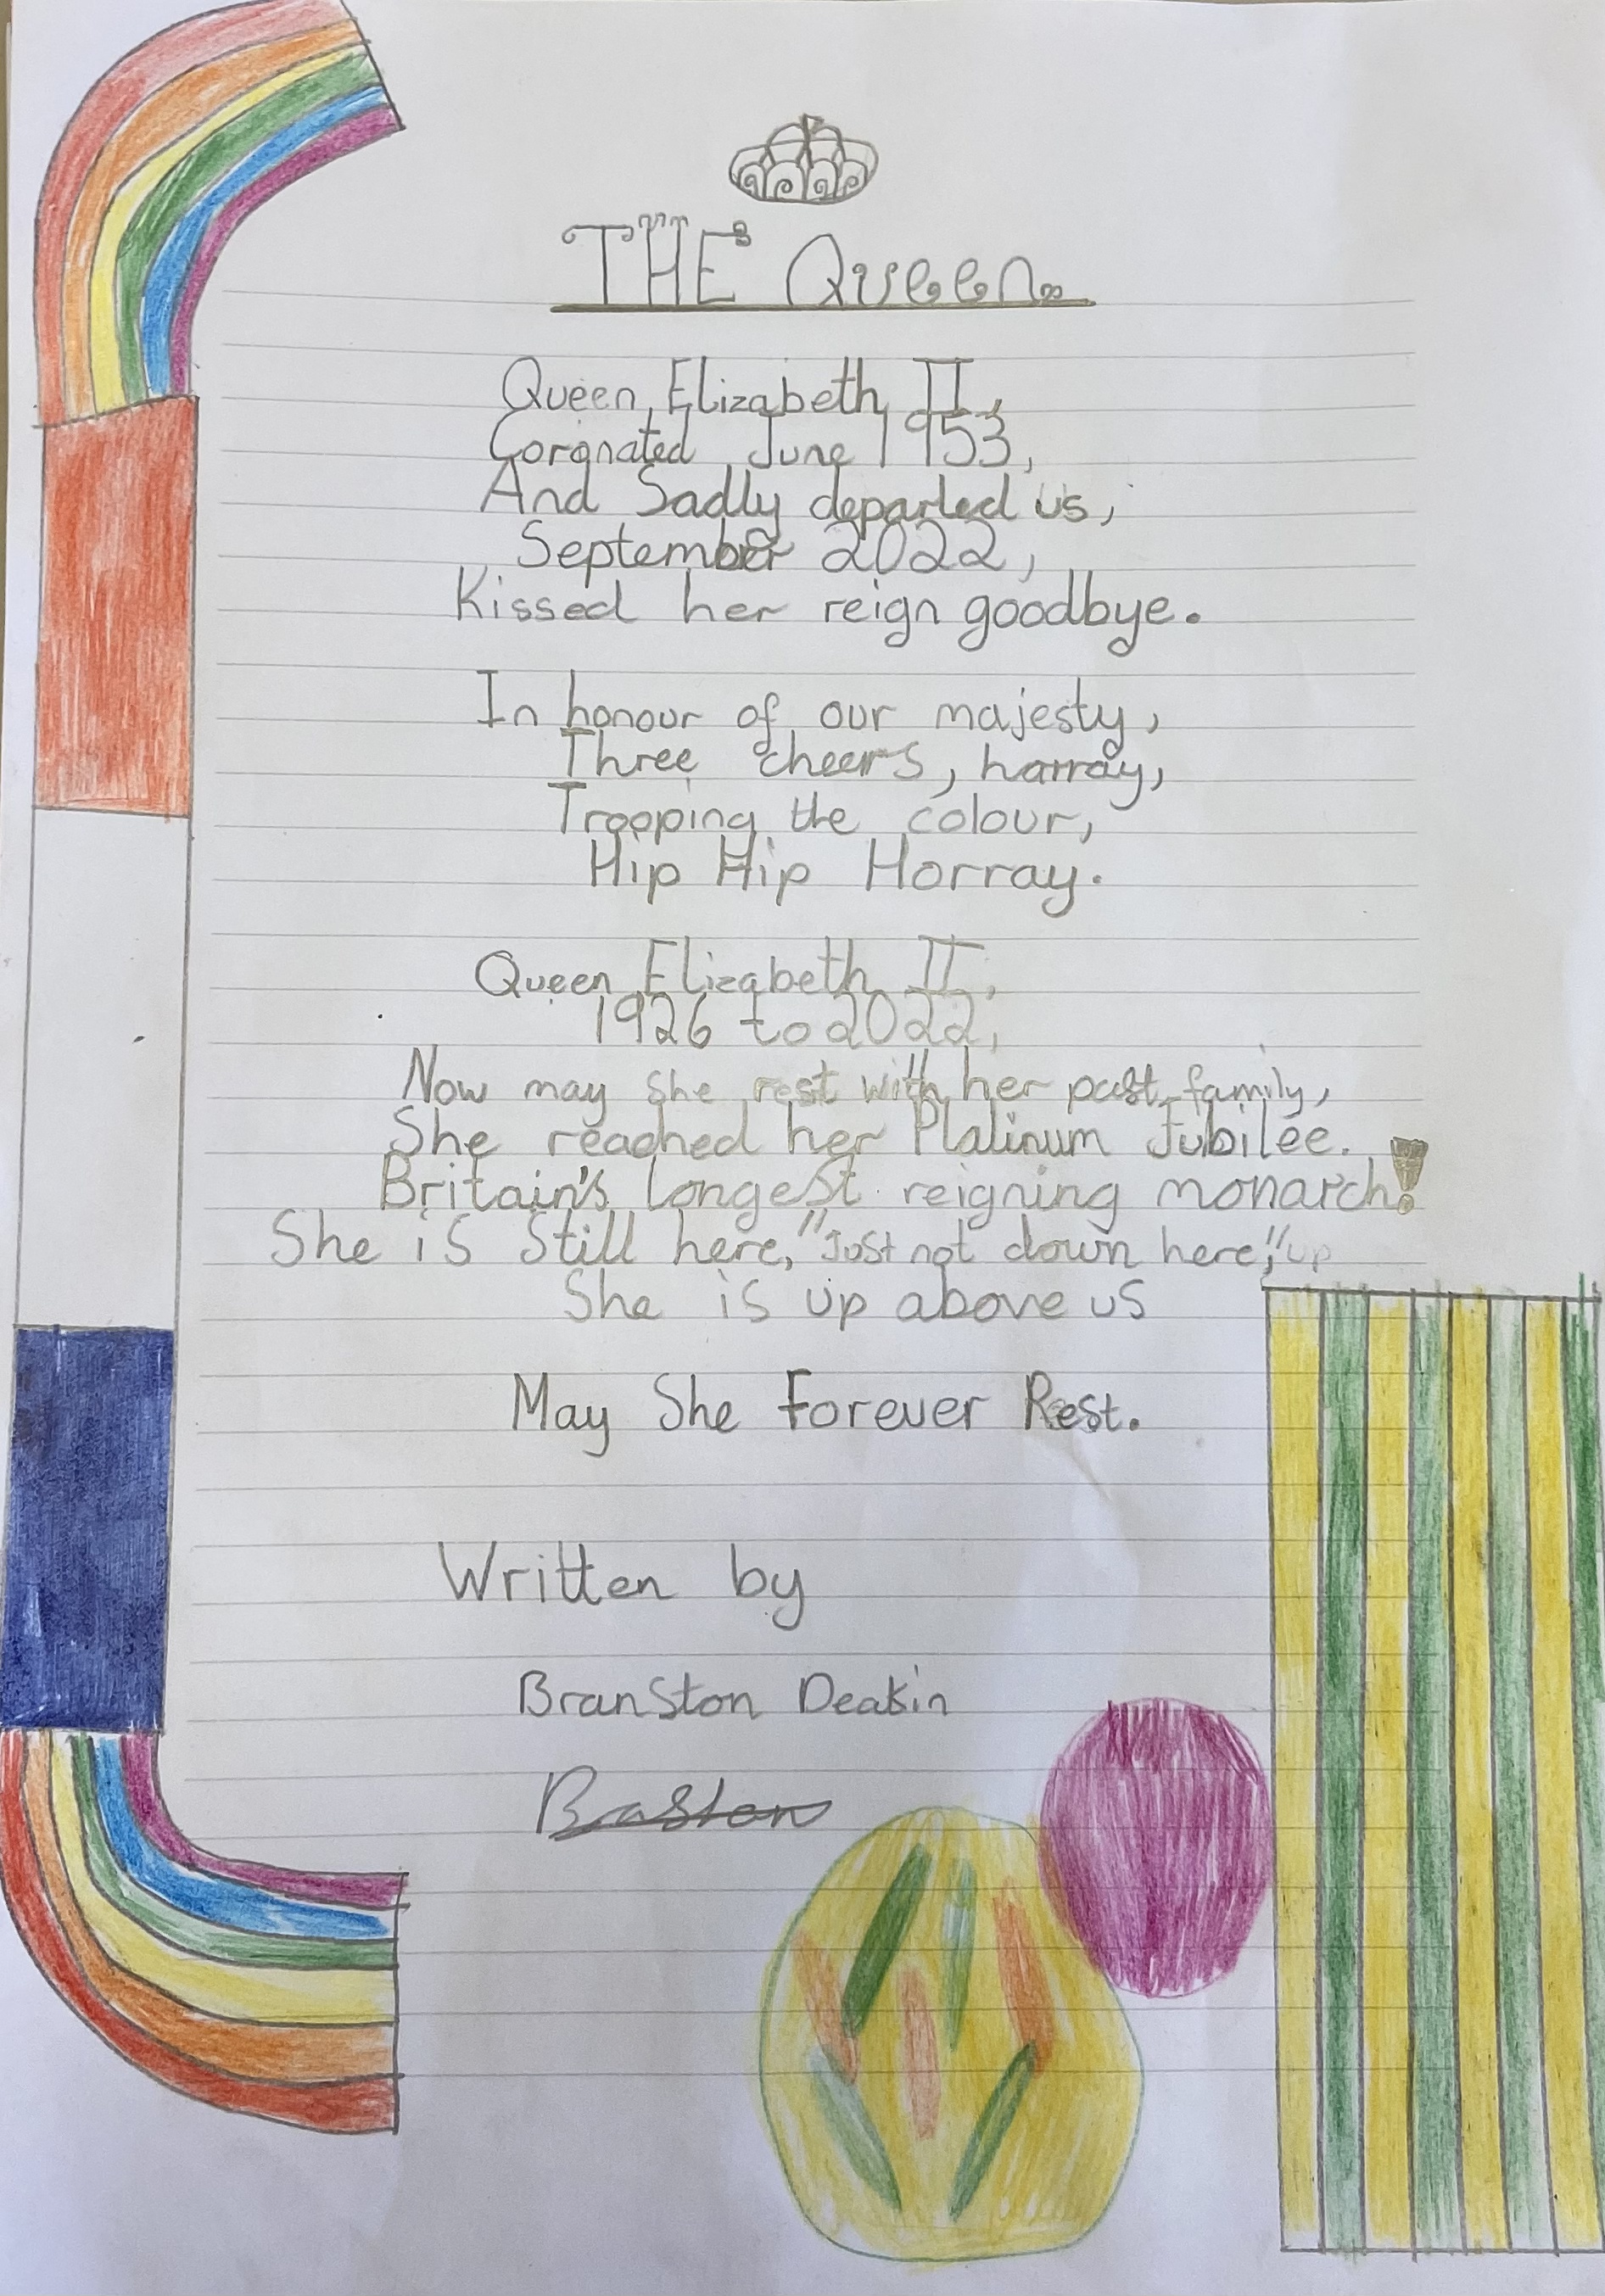 THE Queen
Queen Elizabeth II,
Coronated June 1953,
And Sadly departed us,
September 2022,
Kissed her reign goodbye.
In honour of our majesty,
Three cheers, harray,
Trooping the colour,
Hip Hip Horray.
Queen Elizabeth II,
1926 to 2022,
Now may she rest with her past family,
She reached her Platinum Jubilee.
Britain's longest reigning monarch!
She is Still here, "Just not down here," up
She is up above us
May She Forever Rest.
Written by
Branston Deakin